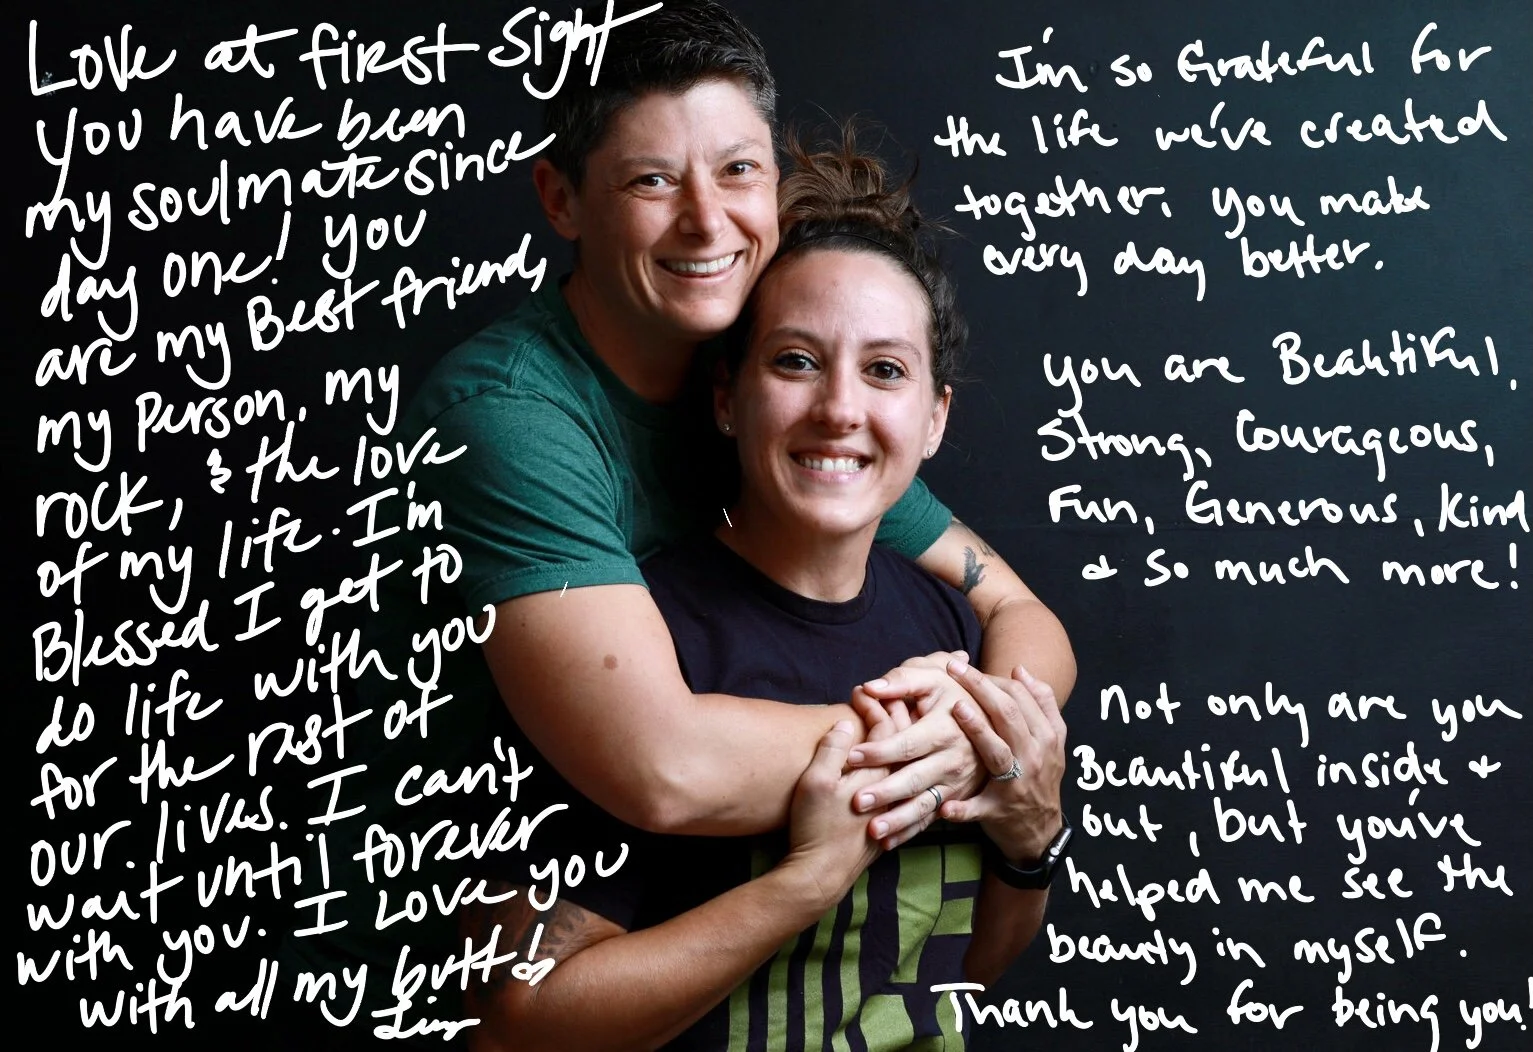 Love at first Sight
You have been
my soulmate since
day one! You
are my Best friend,
my Person, my
rock, & the love
of my life. I'm
Blessed I get to
do life with you
for the rest of
our lives. I can't
wait until forever
with you. I Love you
with all my butt!
I'm so Grateful for
the life we've created
together. You make
every day better.
You are Beautiful,
Strong, Courageous,
Fun, Generous, Kind
& so much more!
Not only are you
Beautiful inside &
out, but you've
helped me see the
beauty in myself.
Thank you for being you!